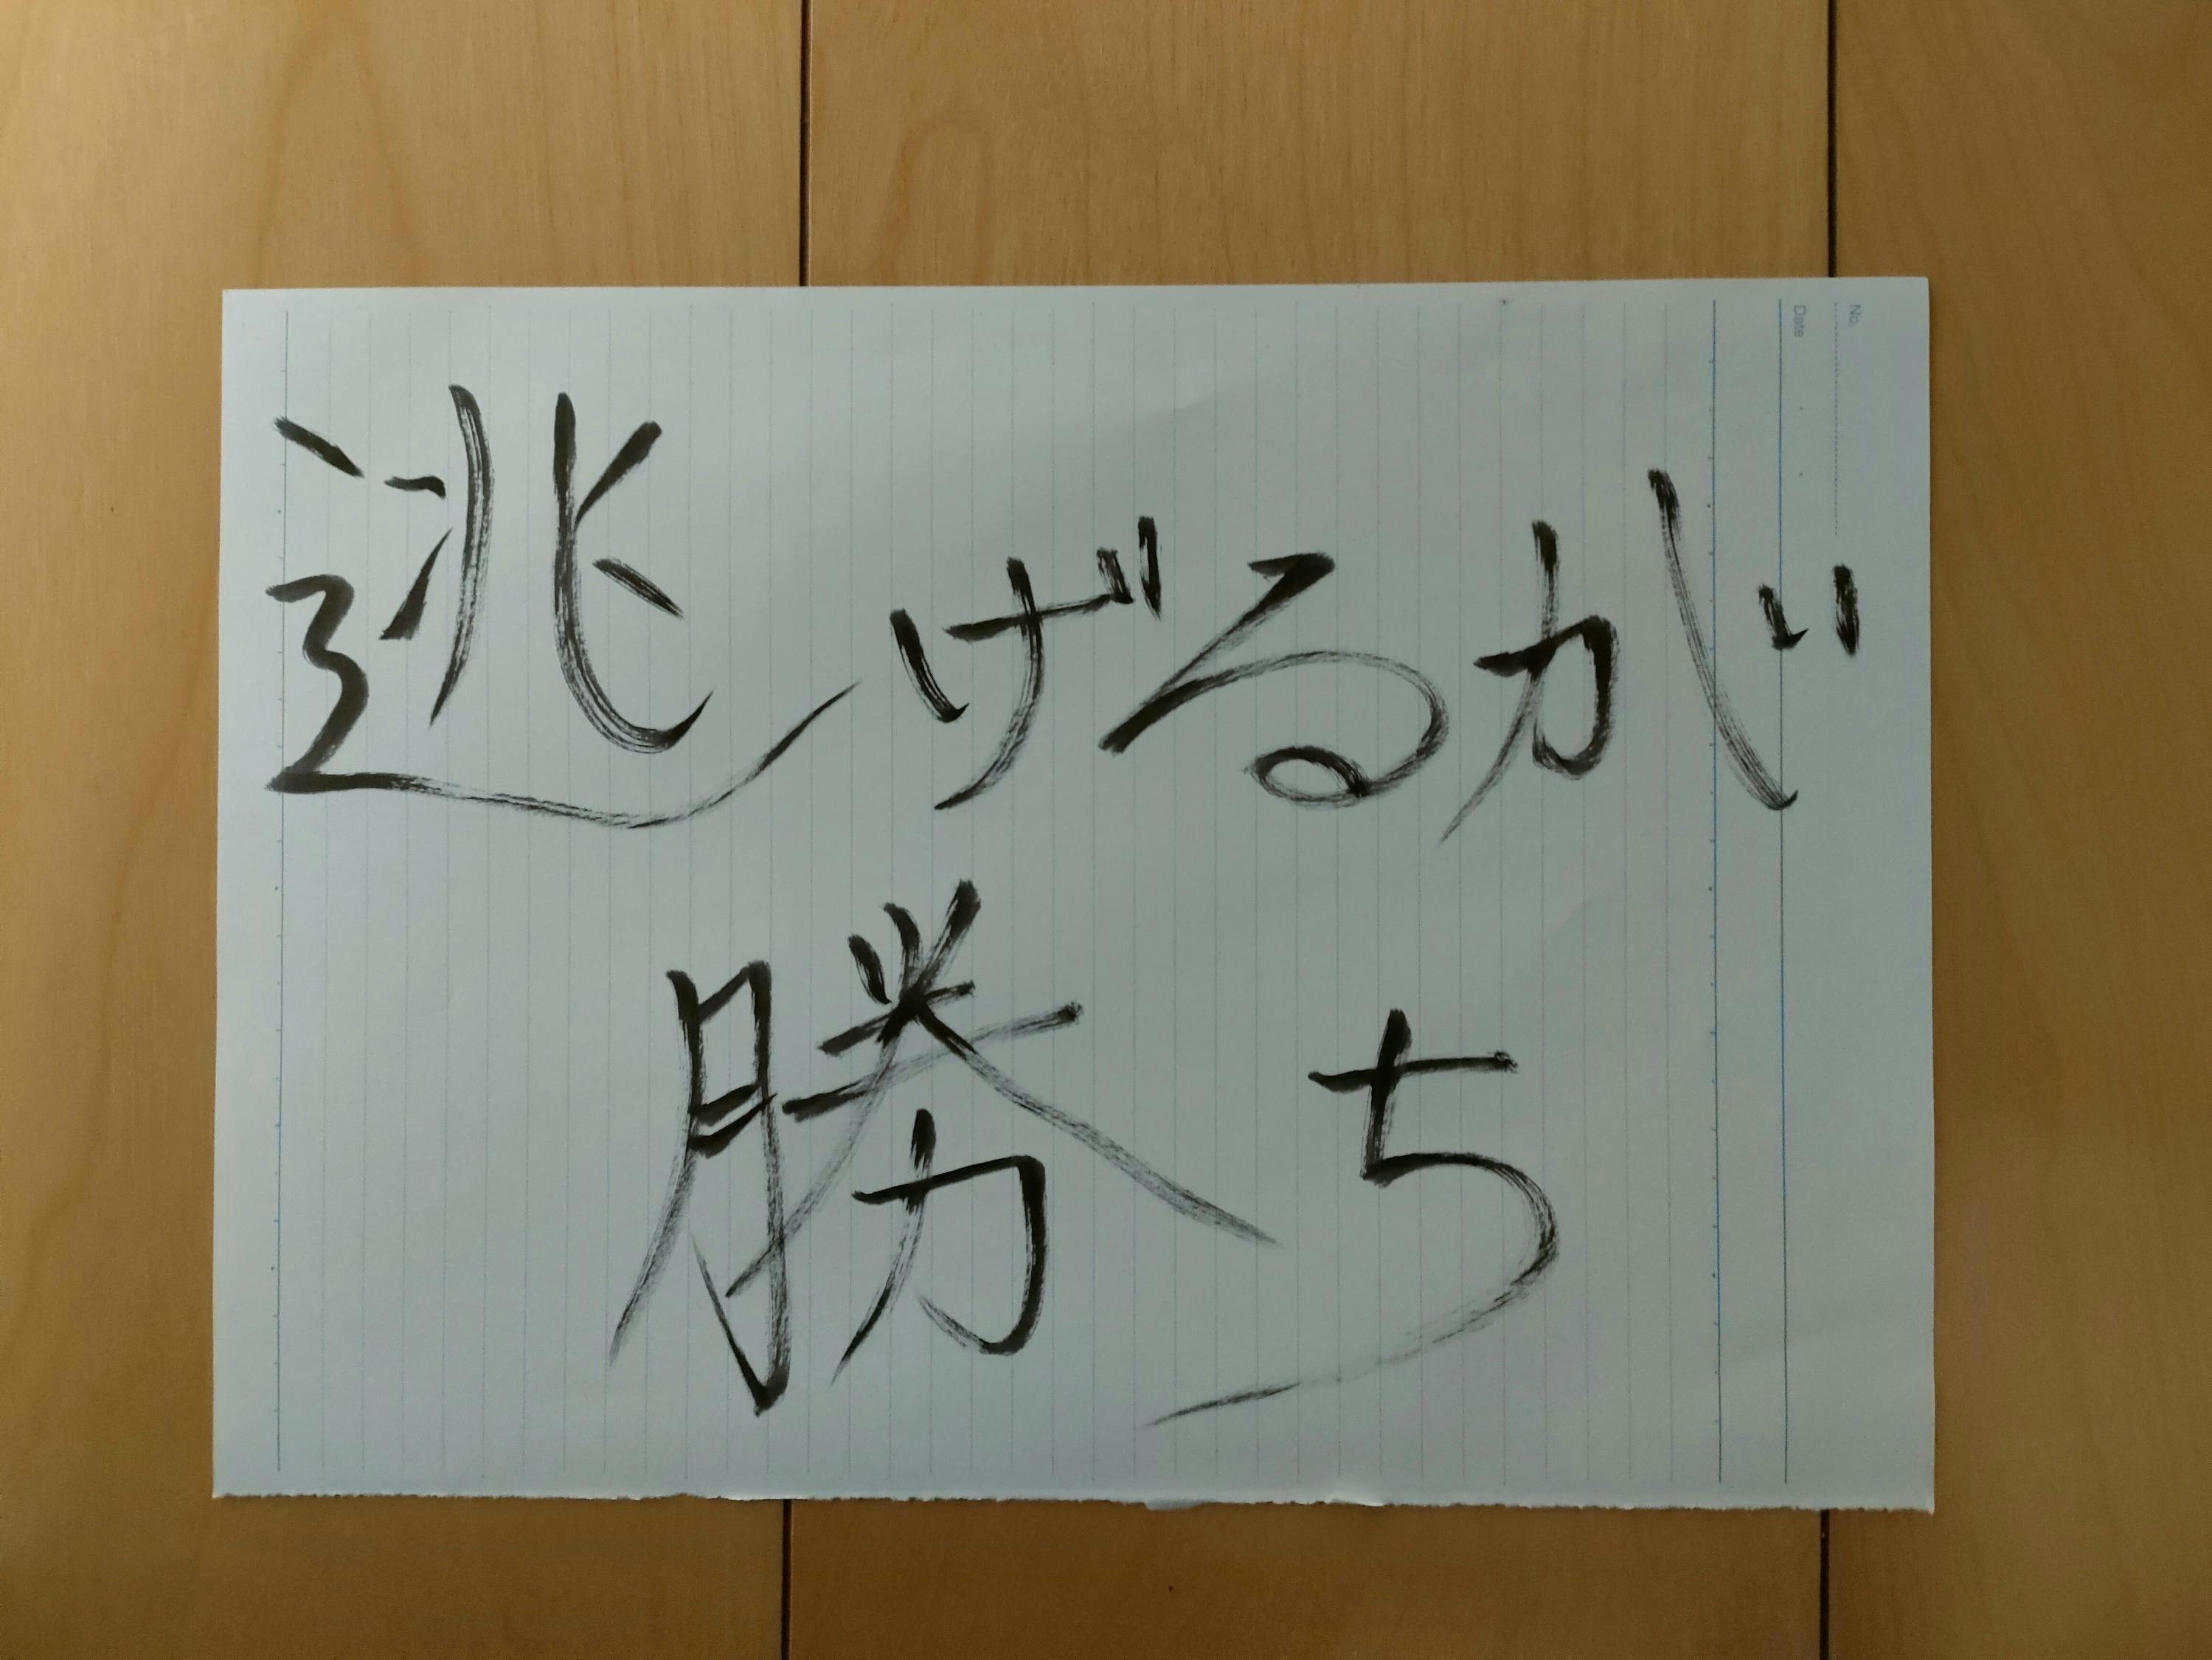 逃げるが
勝ち
No.
Date